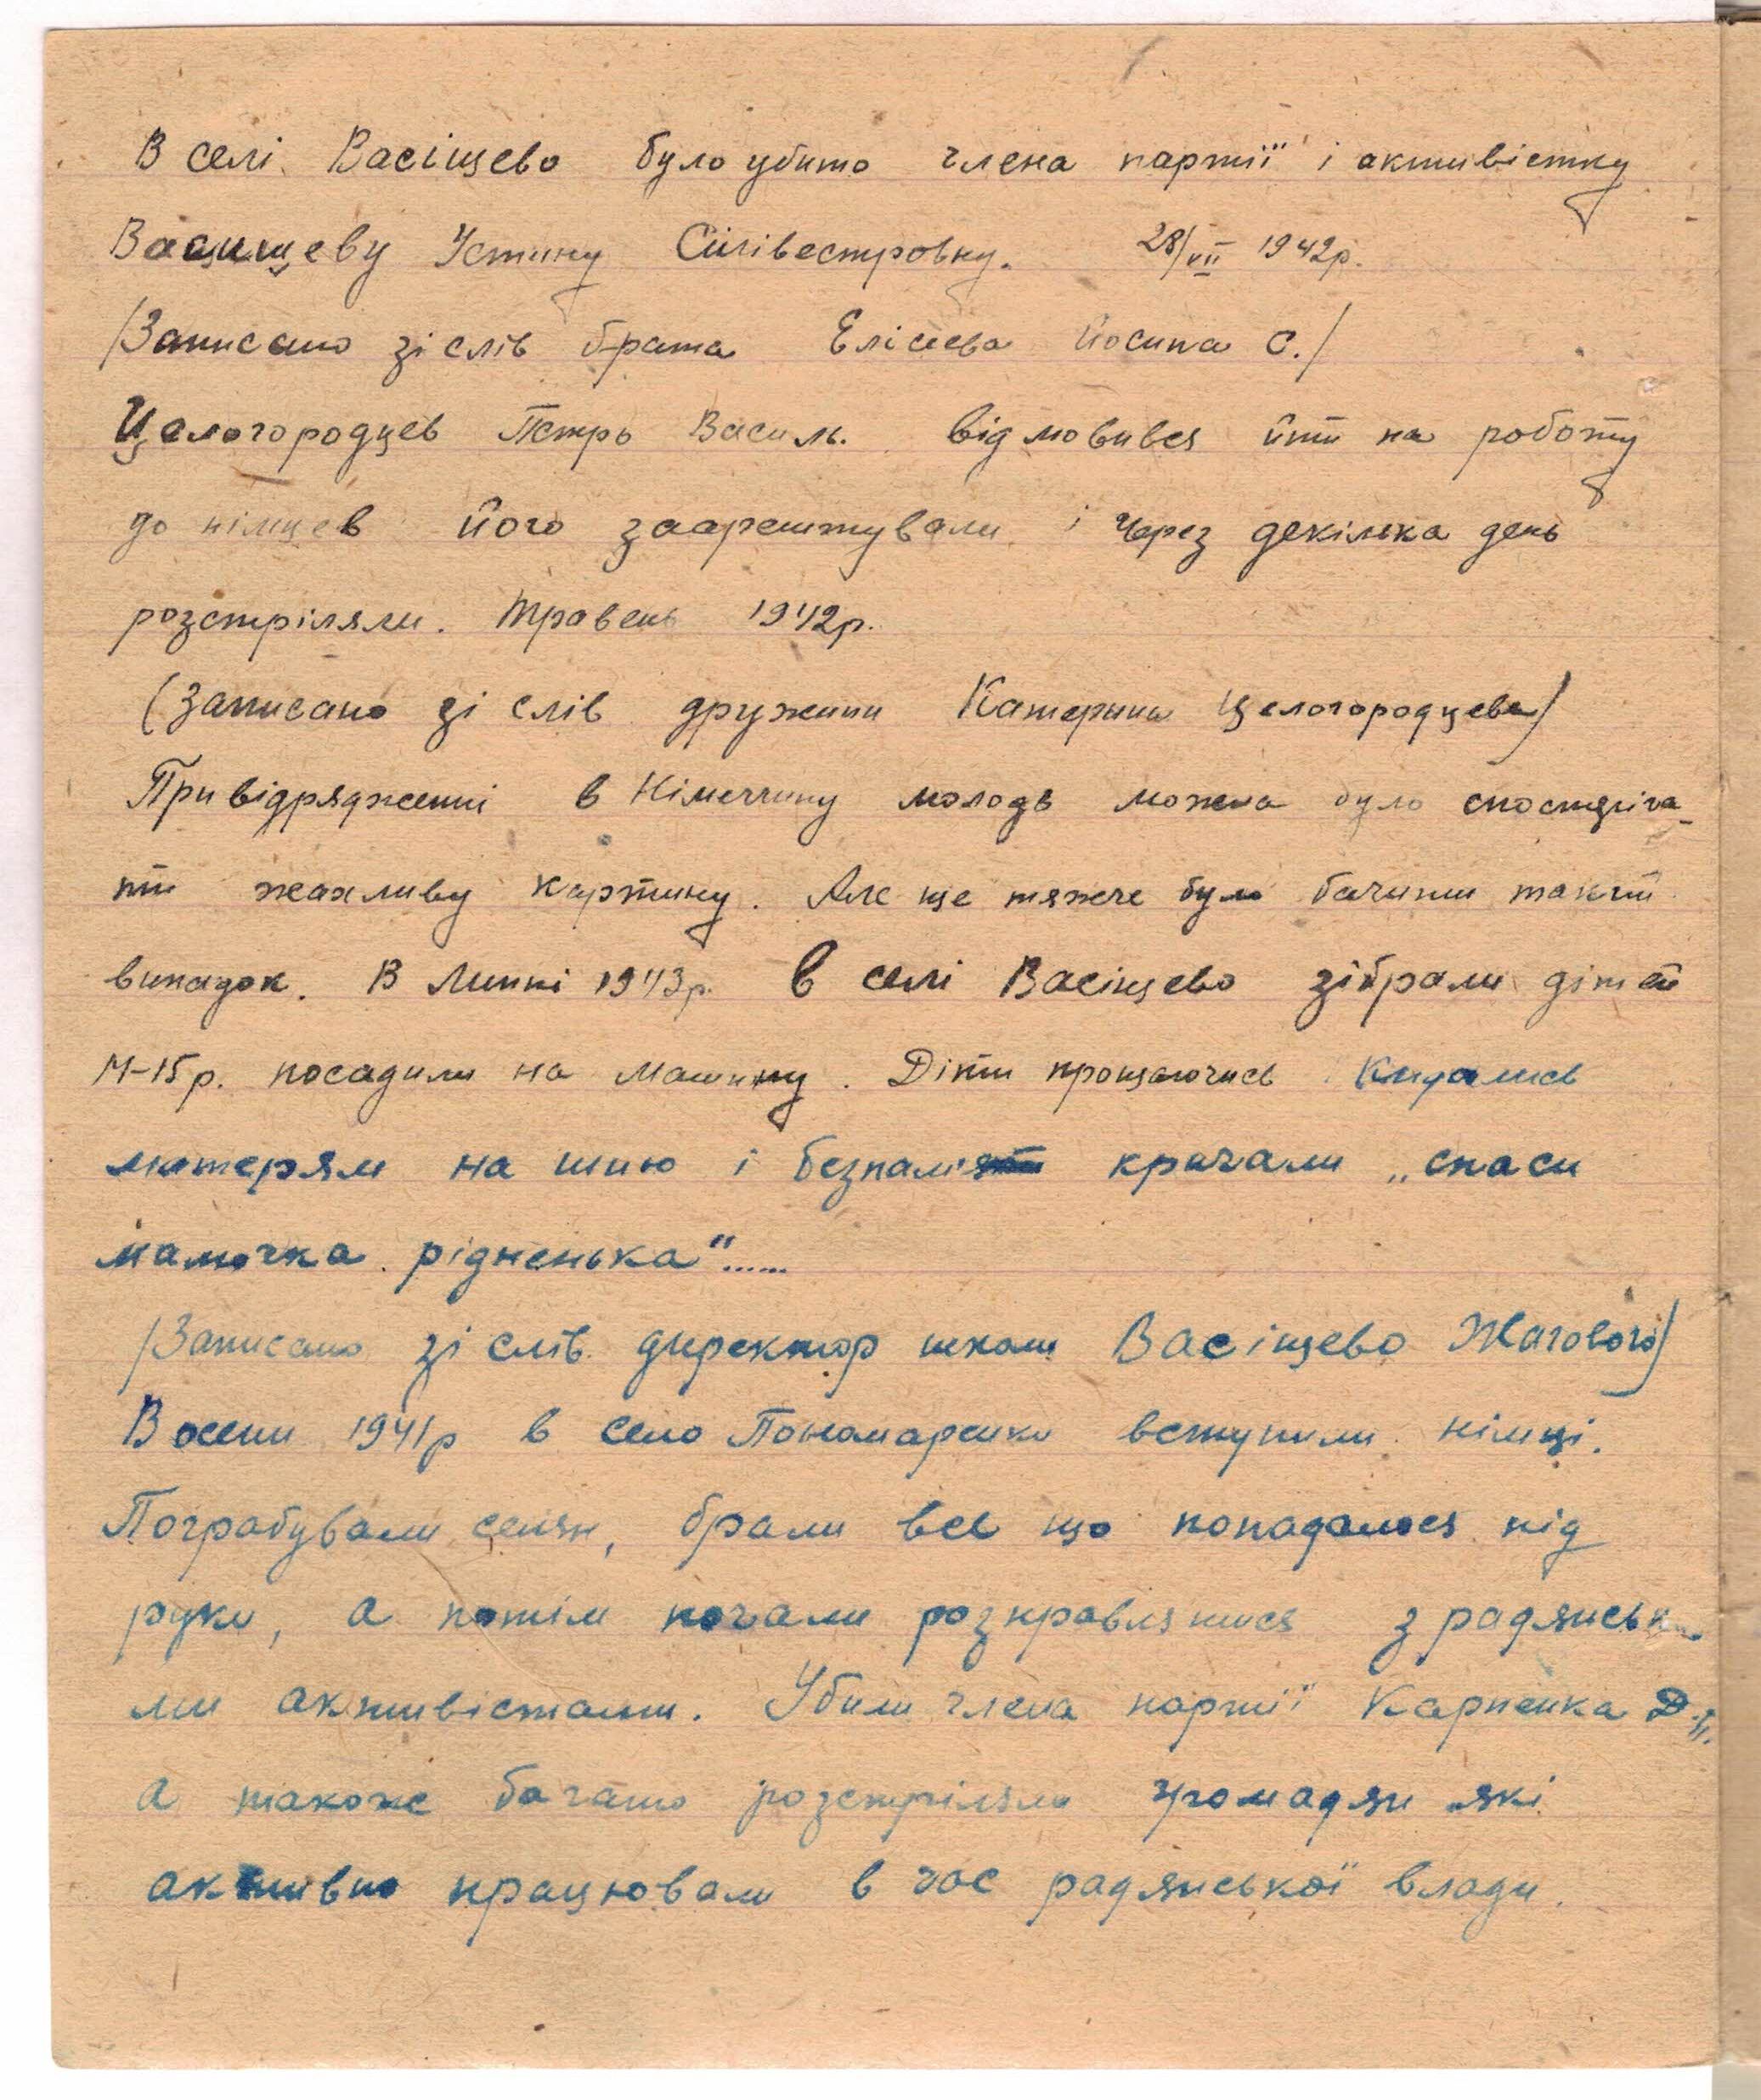 В селі Васіщево було убито члена партії і активістку
Васищеву Устину Сілівестровну. 28/VII 1942р.
/Записано зі слів брата Елісеева Йосипа С./
Целогородцев Петро Василь. відмовився йти на роботу
до німцев його заарештували і через декілька день
розстріляли. Травень 1942р.
(Записано зі слів дружини Катерини Целогородцева)
При відрядженні в Німеччину молодь можна було спостеріга-
ти жахливу картину. Але ще тяжче було бачити такий
випадок. В Липні 1943р. в селі Васіщево зібрали дітей
14-15р. посадили на машину. Діти прощаючись кидались
матерям на шию і безпам'я кричали „спаси
мамочка рідненька"......
/Записано зі слів директор школи Васіщево
Восени 1941р в село Пономаренки вступили німці.
Пограбували селян, брали все що попадалося під
руки, а потім почали розправлятися з радянськи
ми активістами. Убили члена партії Карпенка Д.
а також багато розстріляли громадян які
активно працювали в час радянської влади.